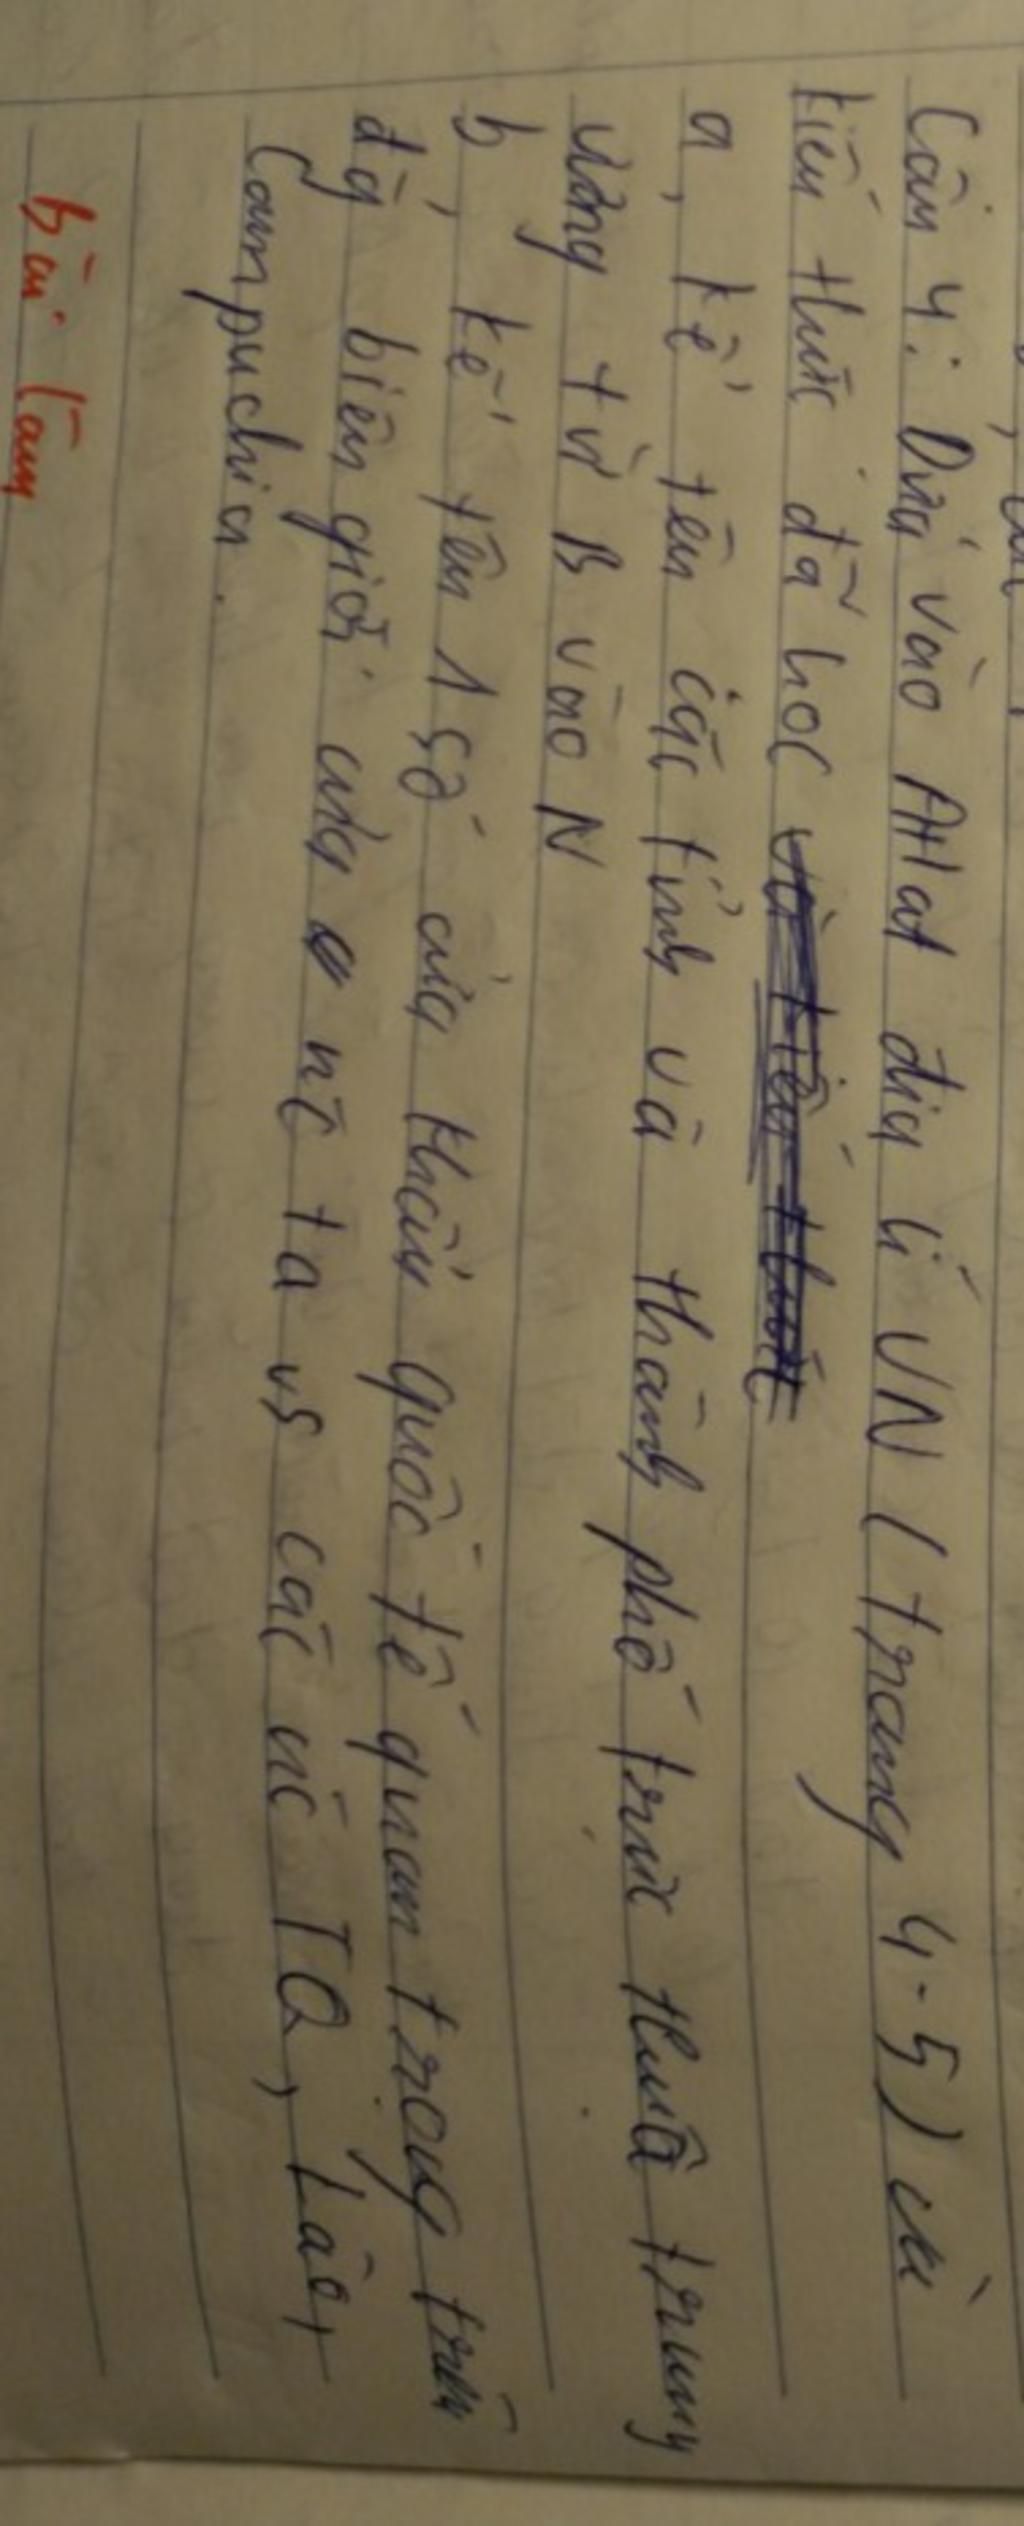 Câu 4: Dựa vào Atlat địa lí VN (trang 4-5) và
kiến thức đã học
a, kể tên các tỉnh và thành phố trực thuộc trung
ương từ B vào N
b, kể tên 1 số cửa khẩu quốc tế quan trọng trên
đg biên giới của nc ta vs các nc TQ, Lào,
Campuchia.
bài làm